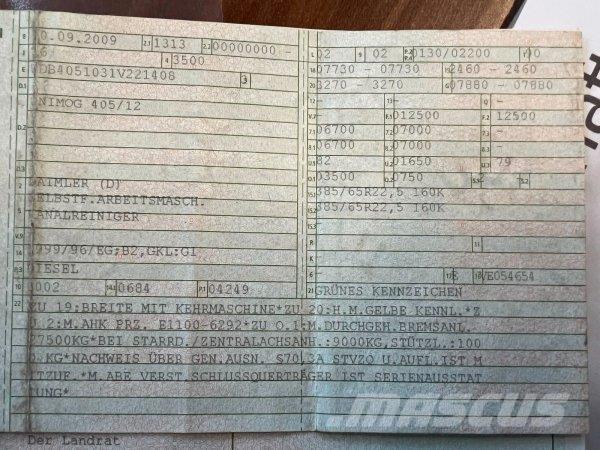 B 0.09.2009 2.1 1313 2.2 00000000 -
L 02 9 02 P.2 P.4 0130/02200 T 00
J 6 4 3500
18 07730 - 07730 19 2460 - 2460
E DB4051031V221408 3
20 3270 - 3270 G 07880 - 07880
D.1
12 - 13 - Q -
NIMOG 405/12
V.7 - F.1 012500 F.2 12500
7.1 06700 7.2 07000 7.3 -
8.1 06700 8.2 07000 8.3 -
U.1 82 U.2 01650 U.3 79
D.3
O.1 03500 O.2 0750 S.1 - S.2
2 DAIMLER (D)
15.1 385/65R22,5 160K
5 SELBSTF.ARBEITSMASCH.
15.2 385/65R22,5 160K
KANALREINIGER
15.3
V.9
R
11
14 1999/96/EG;B2,GKL:G1
K
P.3 DIESEL
6 - 17 E 16 VE054654
10 0002 14.1 0684 P.1 04249
21 GRÜNES KENNZEICHEN
22 ZU 19:BREITE MIT KEHRMASCHINE*ZU 20:H.M.GELBE KENNL.*Z
U 2:M.AHK PRZ. E1100-6292*ZU O.1:M.DURCHGEH.BREMSANL.
27500KG*BEI STARRD./ZENTRALACHSANH.:9000KG,STÜTZL.:100
0 KG*NACHWEIS ÜBER GEN.AUSN. §70,3A STVZO U.AUFL.IST M
ITZUF.*M.ABE VERST.SCHLUSSQUERTRÄGER IST SERIENAUSSTAT
TUNG*
MASCUS
Der Landrat